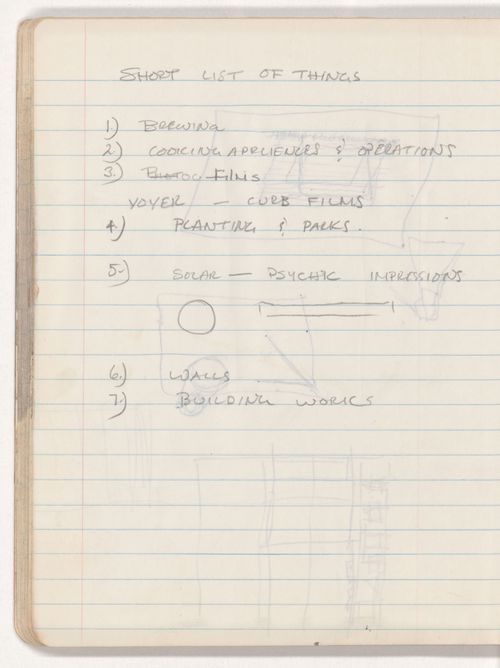 SHORT LIST OF THINGS
1) BREWING
2) COOKING APPLIENCES & OPERATIONS
3) PHOTOG FILMS
VOYER — CURB FILMS
4) PLANTING & PARKS.
5) SOLAR — PSYCHIC IMPRESSIONS
6) WALLS
7) BUILDING WORKS